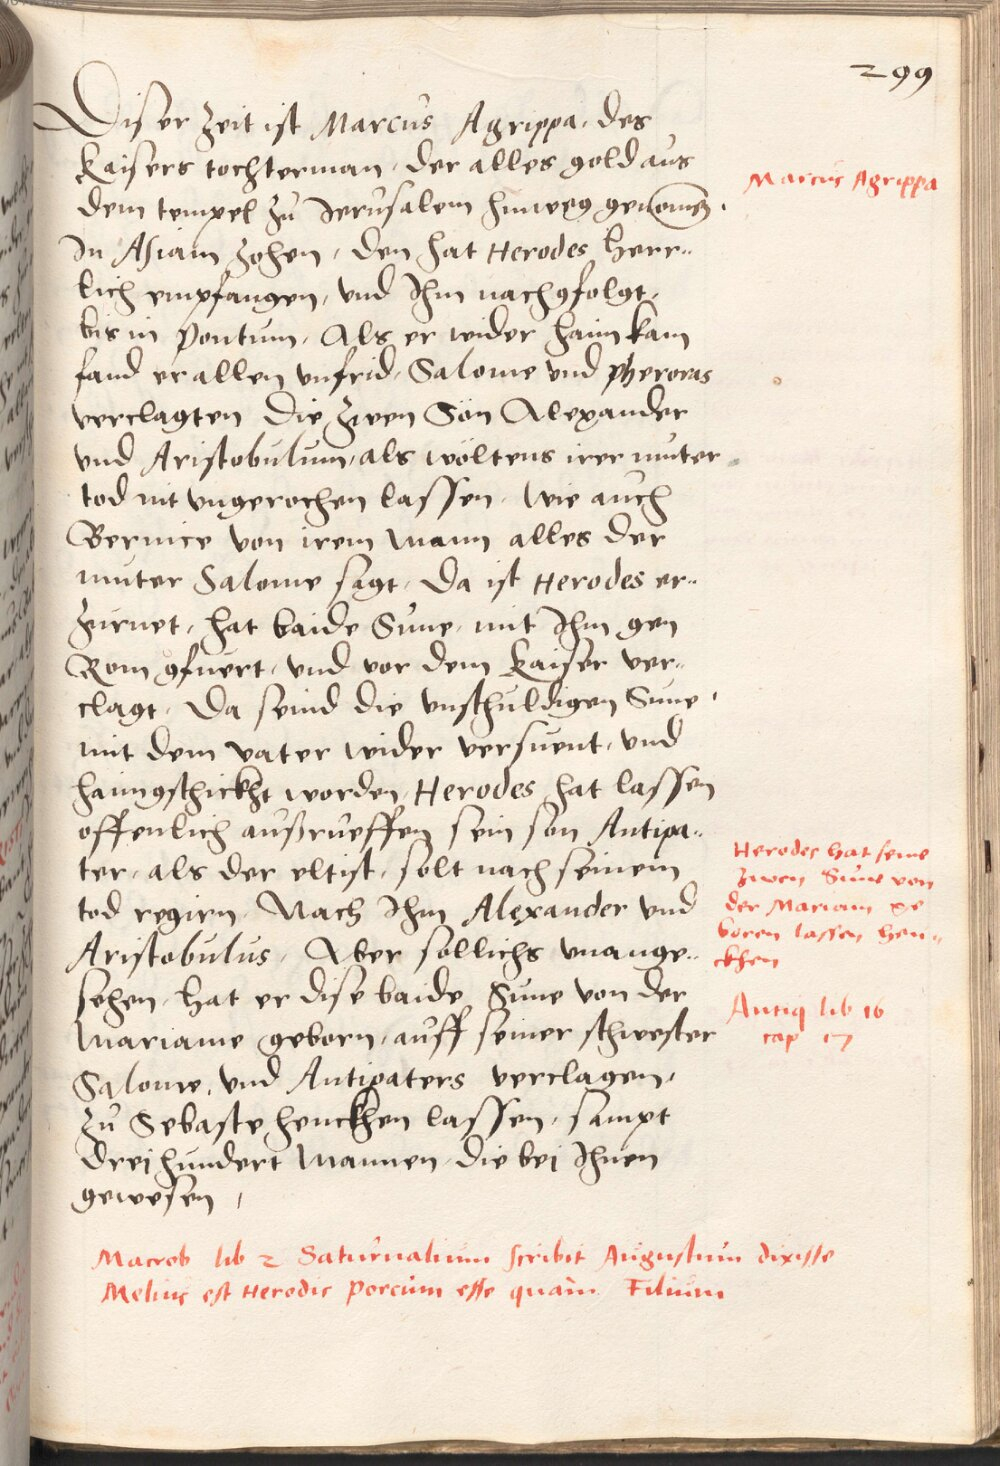 299
Diser zeit ist Marcus Agrippa, des
Kaisers tochterman, der alles gold aus
dem tempel zu Jerusalem hinweg genomen,
In Asiam zohen, den hat Herodes herr-
lich empfangen, vnd Ihm nachgfolgt,
bis in Pontum, Als er wider haim kam
fand er allen vnfrid, Salome vnd Pheroras
verclagten die zwen Sön Alexander
vnd Aristobulum, als wöltens irer muter
tod nit vngerochen lassen, wie auch
Bernice von irem Mann alles der
muter Salome sagt, Da ist Herodes er-
zürnet, hat baide Süne, mit Ihm gen
Rom gfuert, vnd vor dem Kaiser ver-
clagt, Da seind die vnschuldigen Süne,
mit dem vater wider versuent, vnd
haimgschickht worden, Herodes hat lassen
offenlich außrueffen sein son Antipa-
ter, als der eltist, solt nach seinem
tod regirn, Nach Ihm Alexander vnd
Aristobulus, Aber sollichs vnange-
sehen, hat er dise baide Süne von der
Mariame geborn, auff seiner schwester
Salome, vnd Antipaters verclagen,
zu Sebaste henckhen lassen, sampt
dreihundert Mannen, die bei Ihnen
gewesen,
Marcus Agrippa
Herodes hat seine
zwen Süne von
der Mariam ge
boren lassen hen-
ckhen
Antiq lib 16
cap 17
Macrob lib 2 Saturnalium scribit Augustum dixisse
Melius est Herodis Porcum esse quam Filium